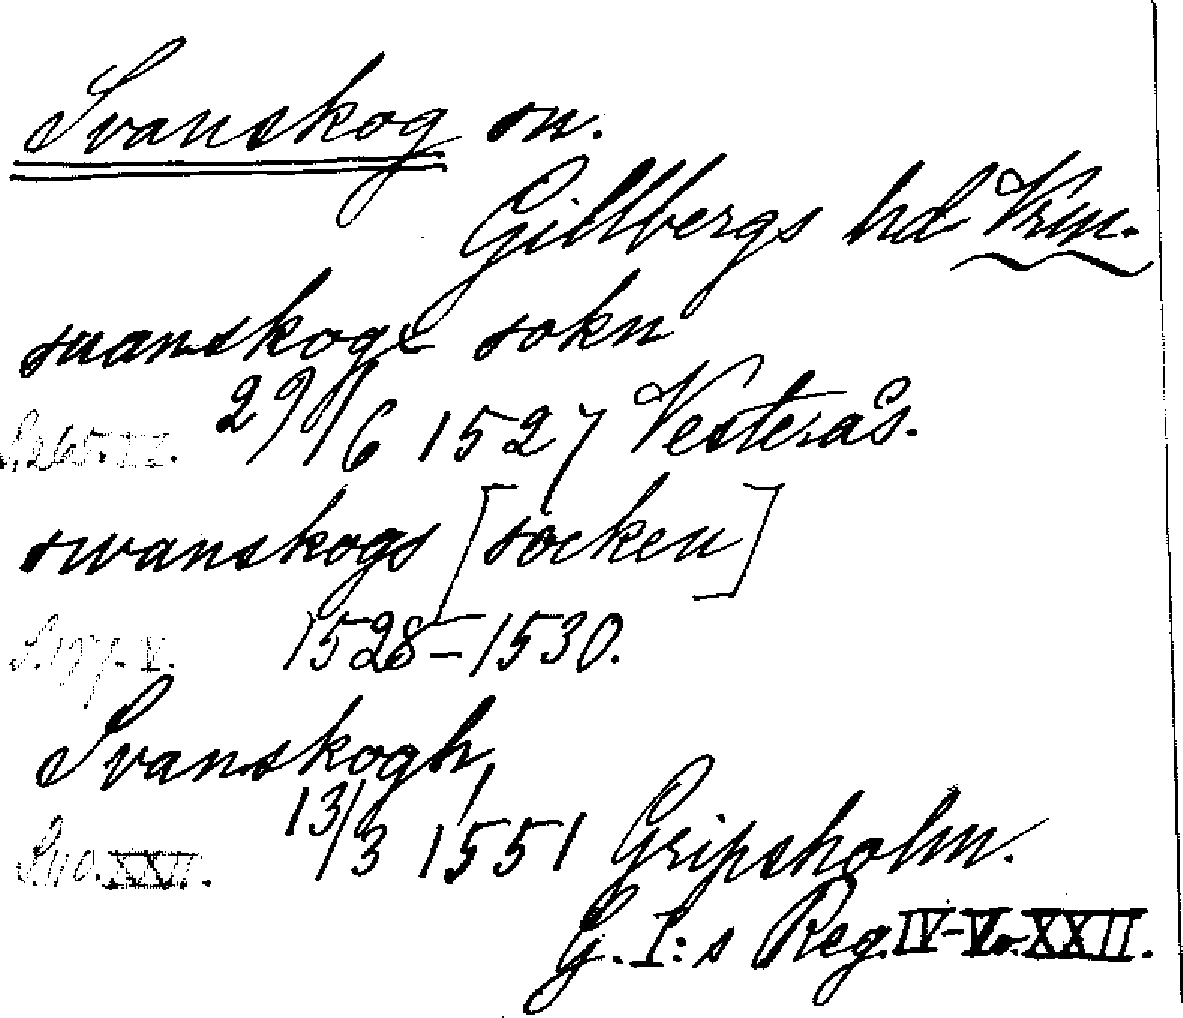 Svanskog sn.
Gillbergs hd Vrm.
suanskogx sokn
29/6 1527 Vesterås.
S. 265. IV.
swanskogs [socken]
S. 197. V. 1528–1530.
Svanskogh,
S. 110. XXII. 13/3 1551 Gripsholm.
G. I:s Reg. IV-V o. XXII.